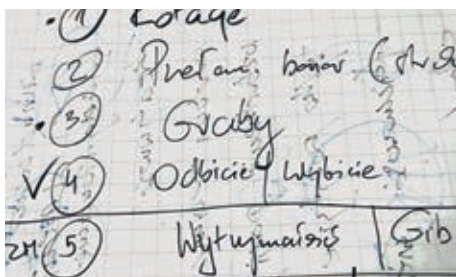 • 1 Kołage
2 Przełam. barier (
• 3 Graby
V 4 Odbicie / Wybicie
5 Wytrzymałość | Gib